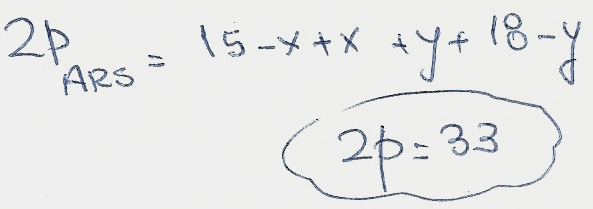 2p ARS = 15-x+x +y+ 18-y
2p=33